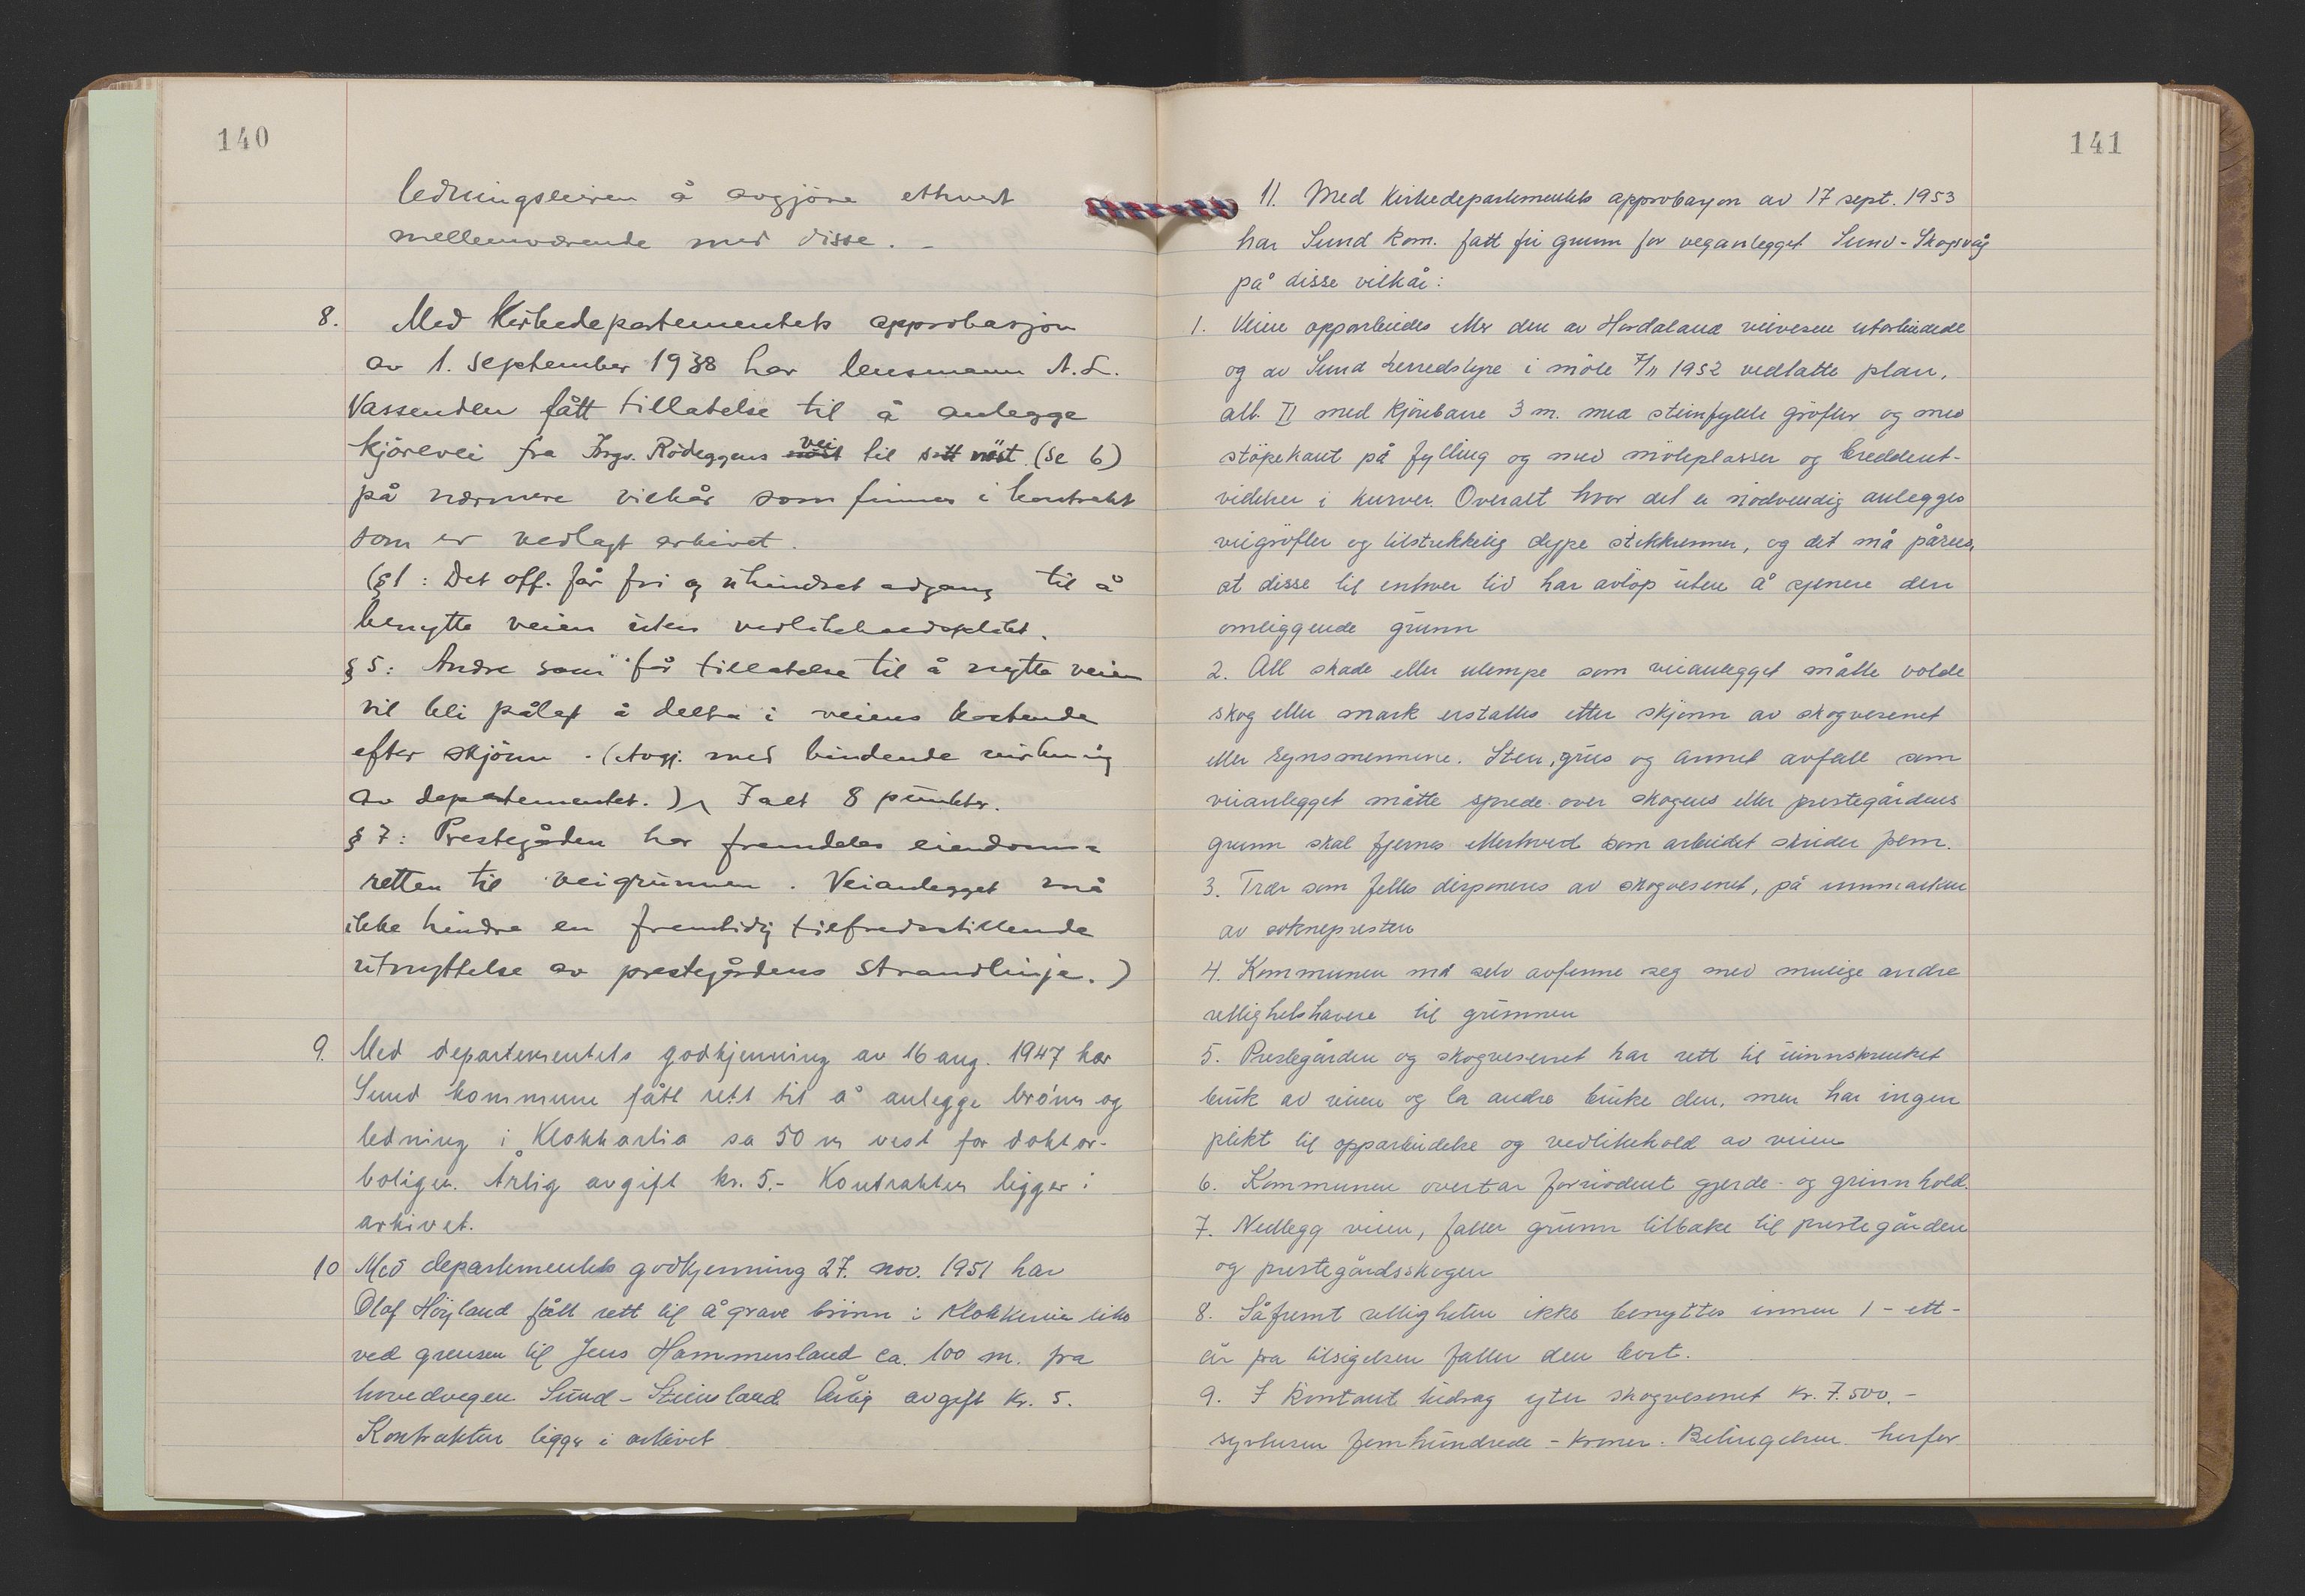 140
ledningseieren å avgjöre ethvert
mellemværende med disse. -
8. Med Kirkedepartementets approbasjon
av 1. september 1938 har lensmann A. L.
Vassenden fått tillatelse til å anlegge
kjörevei fra Ingv. Rödeggens vei til nöst. (se 6)
på nærmere vilkår som finnes i kontrakt
som er vedlagt arkivet.
(§1: Det off. får fri og uhindret adgang til å
benytte veien uten vedlikeholdsplikt.
§ 5: Andre som får tillatelse til å nytte veien
vil bli pålagt å delta i veiens kostende
efter skjönn. (Avgj. med bindende virkning
av departementet.) I alt 8 punkter.
§ 7: Prestegården har fremdeles eiendoms-
retten til veigrunnen. Veianlegget må
ikke hindre en fremtidig tilfredsstillende
utnyttelse av prestegårdens strandlinje.)
9. Med departementets godkjenning av 16 aug. 1947 har
Sund kommune fått rett til å anlegge brönn og
ledning i Klokkarlia ca 50 m vest for doktor-
boligen. Årlig avgift kr. 5.- Kontrakten ligger i
arkivet.
10 Med departementets godkjenning 27. nov. 1951 har
Olaf Höyland fått rett til å grave brönn i like
ved grensen til Jens Hammersland ca. 100 m. fra
hovedvegen Sund - Steinsland. Årlig avgift kr. 5.
Kontrakten ligger i arkivet
141
11. Med Kirkedepartementets approbasjon av 17 sept. 1953
har Sund kom. fått fri grunn for veganlegget Sund - Skogsvåg
på disse vilkår:
1. Veien opparbeides etter den av Hordaland veivesen utarbeidede
og av Sund herredstyre i möte 7/11 1952 vedtatte plan,
alt. II med kjörebane 3 m. med steinfyllte gröfter og med
stöpekant på fylling og med möteplasser og breddeut-
videlser i kurver. Overalt hvor det er nödvendig anlegges
veigröfter og tilstrekkelig dype stikkrenner, og det må påsees,
at disse til enhver tid har avlöp uten å sjenere den
omliggende grunn
2. All skade eller ulempe som veianlegget måtte volde
skog eller mark erstattes etter skjönn av skogvesenet
eller synsmennene. Sten, grus og annet avfall som
veianlegget måtte sprede over skogens eller prestegårdens
grunn skal fjernes etterhvert som arbeidet skrider frem.
3. Trær som felles disponeres av skogvesenet, på innmarken
av soknepresten
4. Kommunen må selv avfinne seg med mulige andre
rettighetshavere til grunnen
5. Prestegården og skogvesenet har rett til uinnskrenket
bruk av veien og la andre bruke den, men har ingen
plikt til opparbeidelse og vedlikehold av veien
6. Kommunen overtar fornödent gjerde- og grinnhold.
7. Nedlegg veien, faller grunn tilbake til prestegården
og prestegårdsskogen
8. Såfremt rettigheten ikke benyttes innen 1 - ett -
år fra tilsigelsen faller den bort.
9. I kontant bidrag yter skogvesenet kr. 7.500.-
syvtusen femhundrede - kroner. Betingelsen herfor